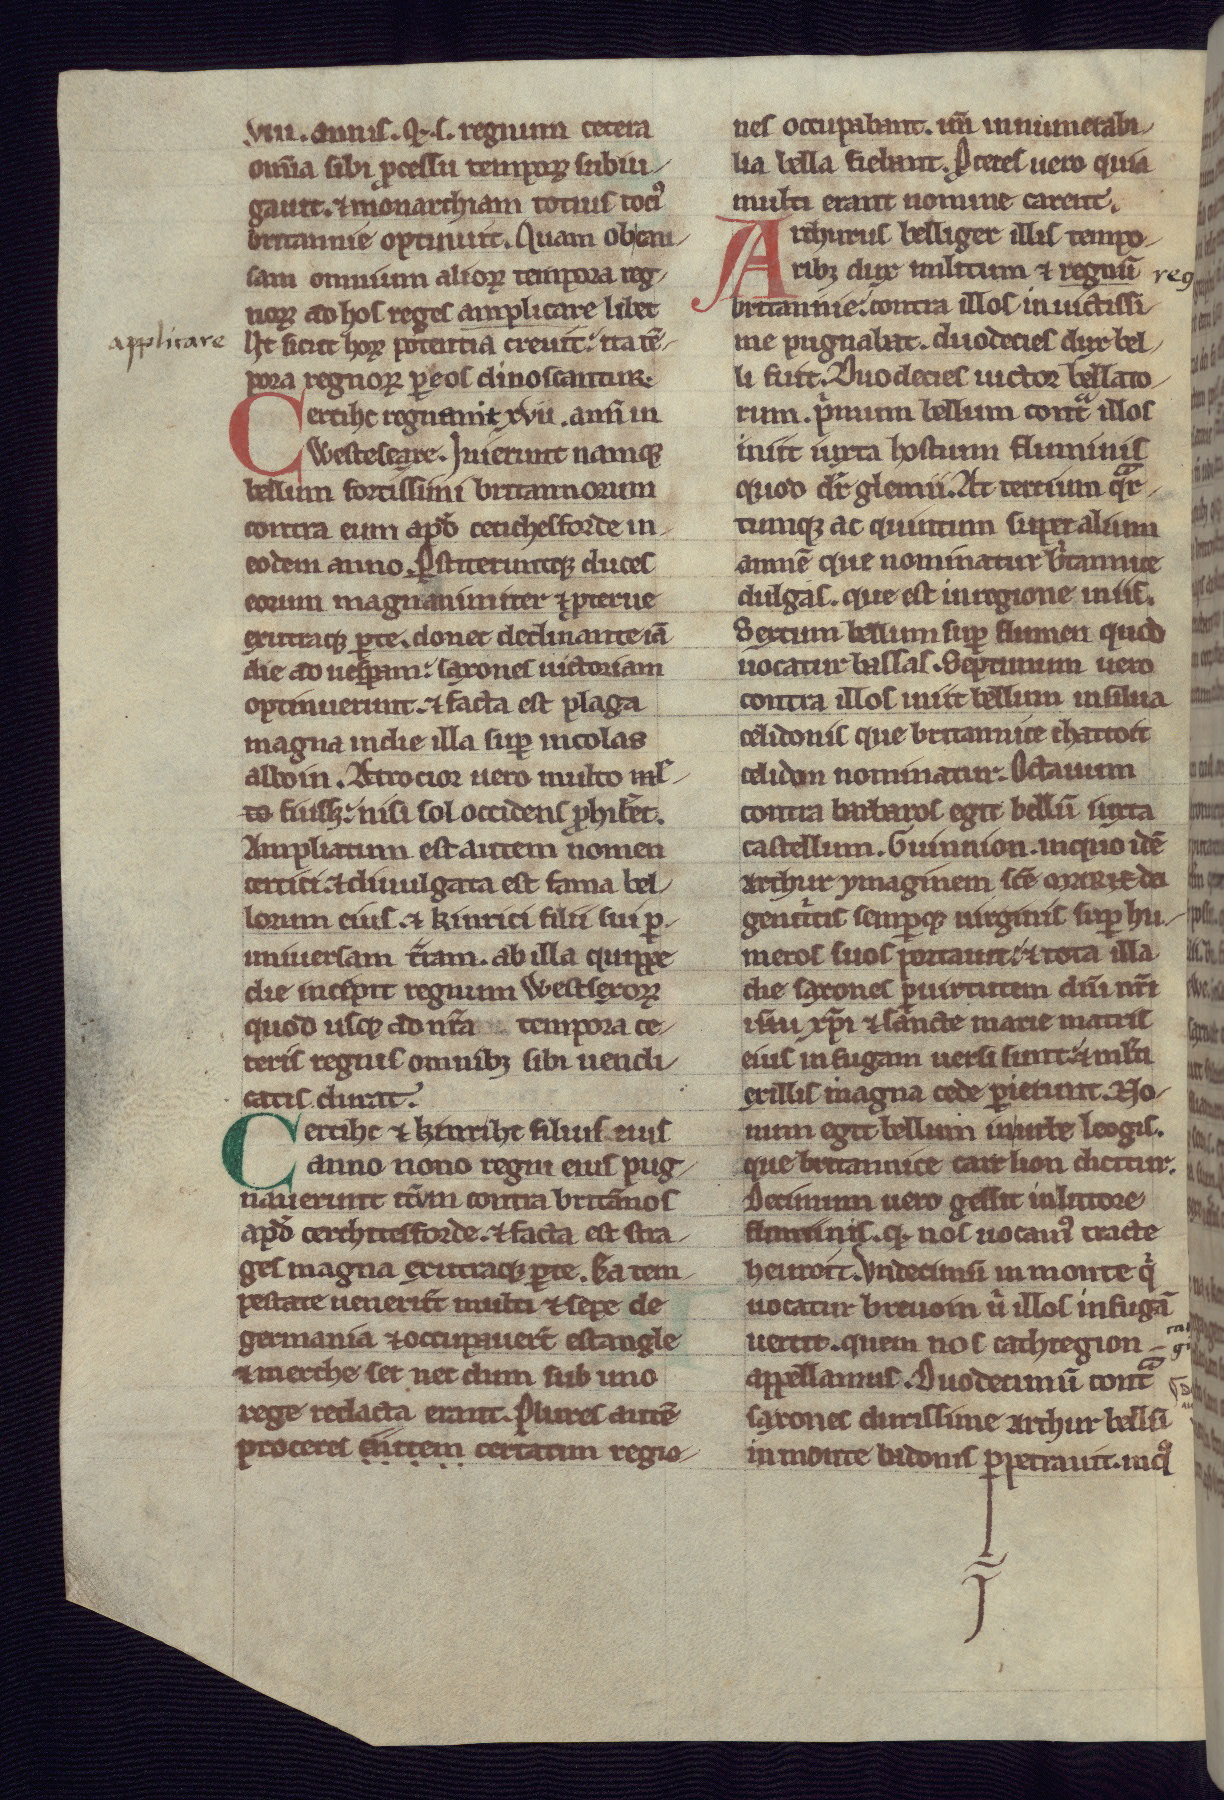 viii. annis. Q. s. regnum cetera
om̄ia sibi ꝓcessu temporꝝ subiu-
gauit. ⁊ monarchiam totius toci᷒
britannie optinuit. Quam ob cau-
sam omnium aliorꝝ tempora reg-
norꝝ ad hos reges amplicare libet
applicare
Vt sicut horꝝ potentia creuit: ita tē-
pora regnorꝝ ꝑ eos dinoscantur.
Certihc regnauit xvii. anñ in
Westesexe. Inierunt namqꝫ
bellum fortissimi britannorum
contra eum apđ certichesforde in
eodem anno. Pstiteruntqꝫ duces
eorum magnanimiter ⁊ ꝓterue
exutraqꝫ ꝑte. donec declinante iā
die ad uesꝑam: saxones uictoriam
optinuerunt. ⁊ facta est plaga
magna indie illa suꝑ incolas
alboin. Atrocior uero multo ml̄-
to fuissꝫ: nisi sol occidens ꝓhiƀet.
Ampliatum est autem nomen
certici. ⁊ diuulgata est fama bel-
lorum eius. ⁊ kinrici filii sui ꝑ
uniuersam t̄ram. ab illa quippe
die incepit regnum Westsexorꝝ
quod usqꝫ ad nr̄a tempora ce-
teris regnis omnibꝫ sibi uendi-
catis durat.
Certihc ⁊ kinrihc filius eius
anno nono regni eius pug-
nauerunt itm̄ contra britānos
apđ cerchitesforde. ⁊ facta est stra-
ges magna exutraqꝫ ꝑte. Ea tem-
pestate uenerūt multi ⁊ sepe de
germania ⁊ occupauer̄t estangle
⁊ merche set nec dum sub uno
rege redacta erant. Plures autē
proceres autem certatim regio-
nes occupabant. un̄ innumerabi-
lia bella fiebant. Pceres uero quia
multi erant nomine carent.
Arthurus belliger illis tempo-
ribꝫ dux militum ⁊ regnū
reg
britannie: contra illos inuictissi-
me pugnabat. duodecies dux bel-
li fuit. Duodecies uictor bellato-
rum. p̄mum bellum contᵃ illos
iniit iuxta hostium fluminis
quod dr̄ glemii. At tertium qᵃr-
tumqꝫ ac quintum super alium
amnē que nominatur bᵢtannice
dulgas. que est inregione iniis.
Sextum bellum suꝑ flumen quod
uocatur bassas. Septimum uero
contra illos iniit bellum insilua
celidonis que britannice chattoit
celidon nominatur. Octauum
contra barbaros egit bellū iuxta
castellum. Guinnion. inquo idē
arthur ymaginem scē MARIE dei
genitᵢcis semꝑqꝫ uirginis suꝑ hu-
meros suos portauit: ⁊ tota illa
die saxones ꝑ uirtutem dn̄i nr̄i
ihu xp̄i ⁊ sancte marie matris
eius in fugam uersi sunt: ⁊ ml̄ti
exillis magna cede ꝑierunt. No-
num egit bellum inurbe leogis.
que britannice cair lion dicitur.
Decimum uero gessit inlittore
fluminis. q̇ nos uocam᷒ tracte
heuroit. Vndecimū in monte q̇
uocatur breuoin u̇ illos infugā
uertit. quem nos cathregion
appellamus. Duodecimū contᵃ
saxones durissime arthur bellū
in monte badonis ꝑpetrauit. inq᷒